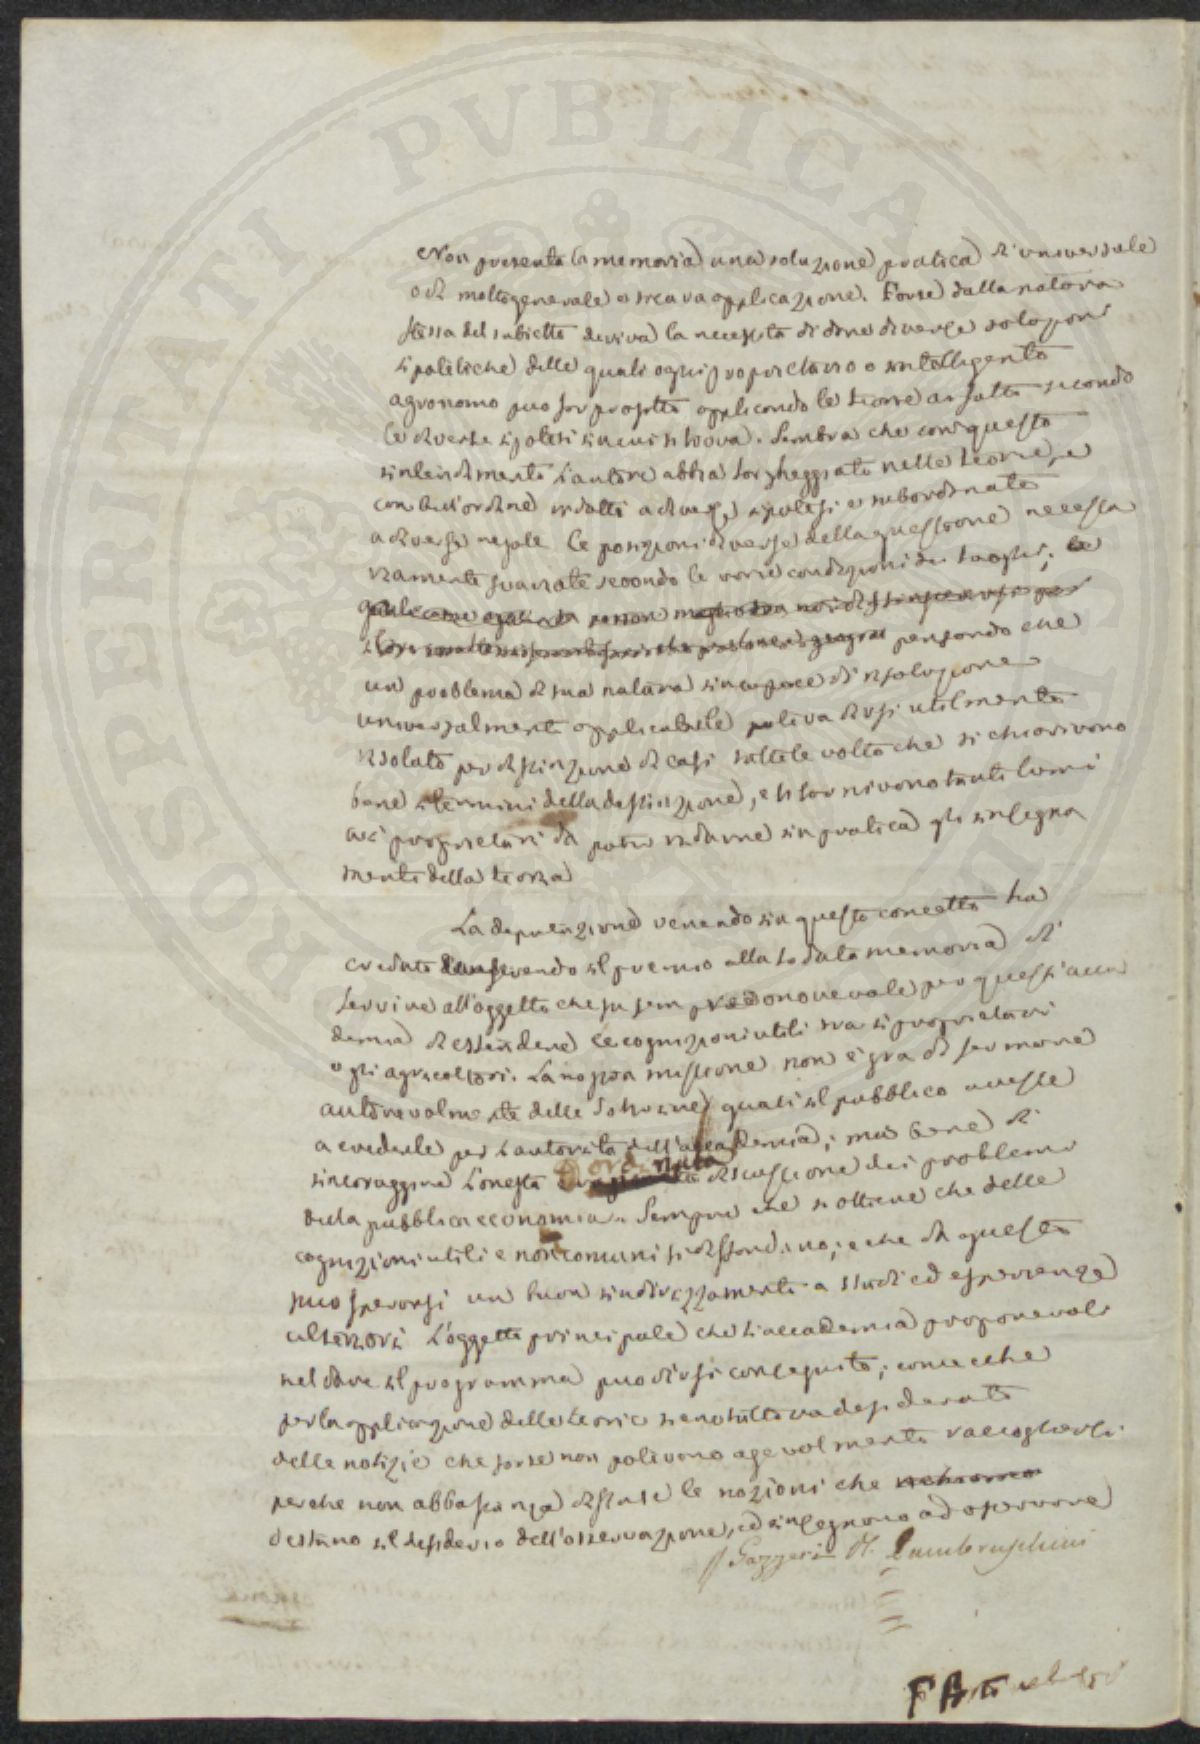 Non presenta la memoria una soluzione pratica di universale
o di molto generale e sicura applicazione. Forse dalla natura
stessa del subietto deriva la necessità di dare diverse soluzioni
ipotetiche delle quali ogni proprietario o intelligente
agronomo può far profitto applicando le teorie ai fatti secondo
le diverse ipotesi in cui si trova. Sembra che con questo
intendimento l'autore abbia nelle teorie, e
con bell'ordine ridotti a diverse ipotesi e subordinate
a diverse regole le posizioni diverse della questione necessa
riamente svariate secondo le varie condizioni dei luoghi;
pensando che
un problema di sua natura incapace di risoluzione
universalmente applicabile poteva dirsi utilmente
risoluto per distinzione di casi tutte le volte che si chiarivano
bene i termini della distinzione, e si fornivano tanti lumi
ai proprietari da poter ridurre in pratica gli insegna
menti della teoria
La deputazione venendo in questo concetto ha
creduto conferendo il premio alla lodata memoria di
servire all'oggetto che fu sempre onorevole per quest'acca
demia di estendere le cognizioni utili tra i proprietari
e gli agricoltori. La nostra missione non è già di fermare
autorevolmente delle dottrine quali il pubblico avesse
a crederle per l'autorità dell'accademia; ma bene di
incoraggire l'onesta e ordinata discussione dei problemi
della pubblica economia. Sempre che si ottiene che delle
cognizioni utili e non comuni si diffondano; e che da questo
può sperarsi un buon indirizzamento a studi ed esperienze
ulteriori l'oggetto principale che l'accademia proponevasi
nel dare il programma può dirsi conseguito; comecche
per la applicazione delle teorie sieno tuttavia desiderate
delle notizie che forse non potevano agevolmente raccogliersi
perche non abbastanza diffuse le nozioni che
destano il desiderio dell'osservazione, ed insegnano ad osservare
Gazzeri R. Lambruschini
F